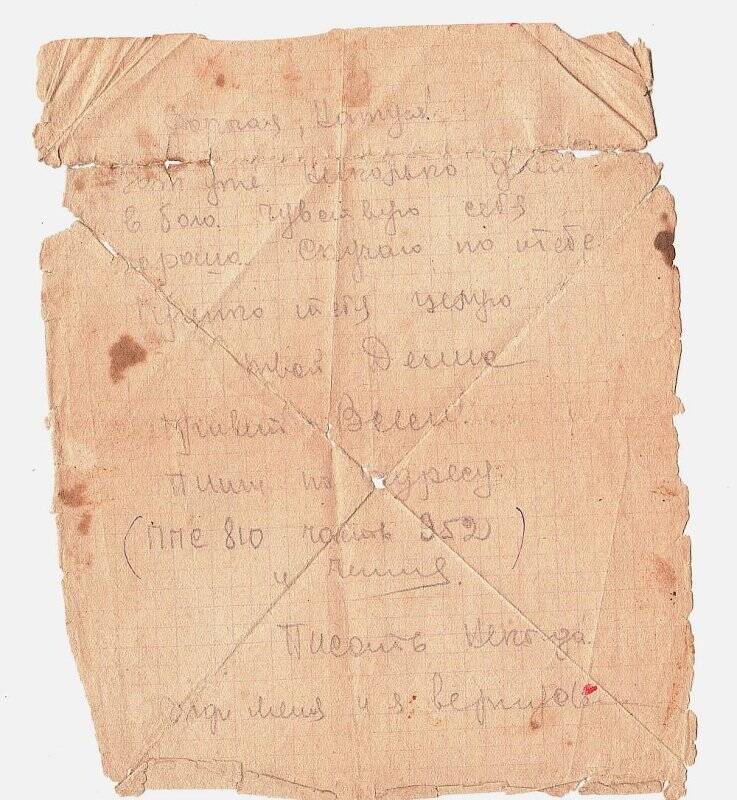 Дорогая, Натуся!
Вот уже несколько дней
в бою. Чувствую себя
хорошо. Скучаю по тебе.
Крепко тебя целую
твой
Привет Всем!
Пиши по адресу:
(ППС 810 часть 952)
и
Писать некогда.
Жди меня и я вернусь